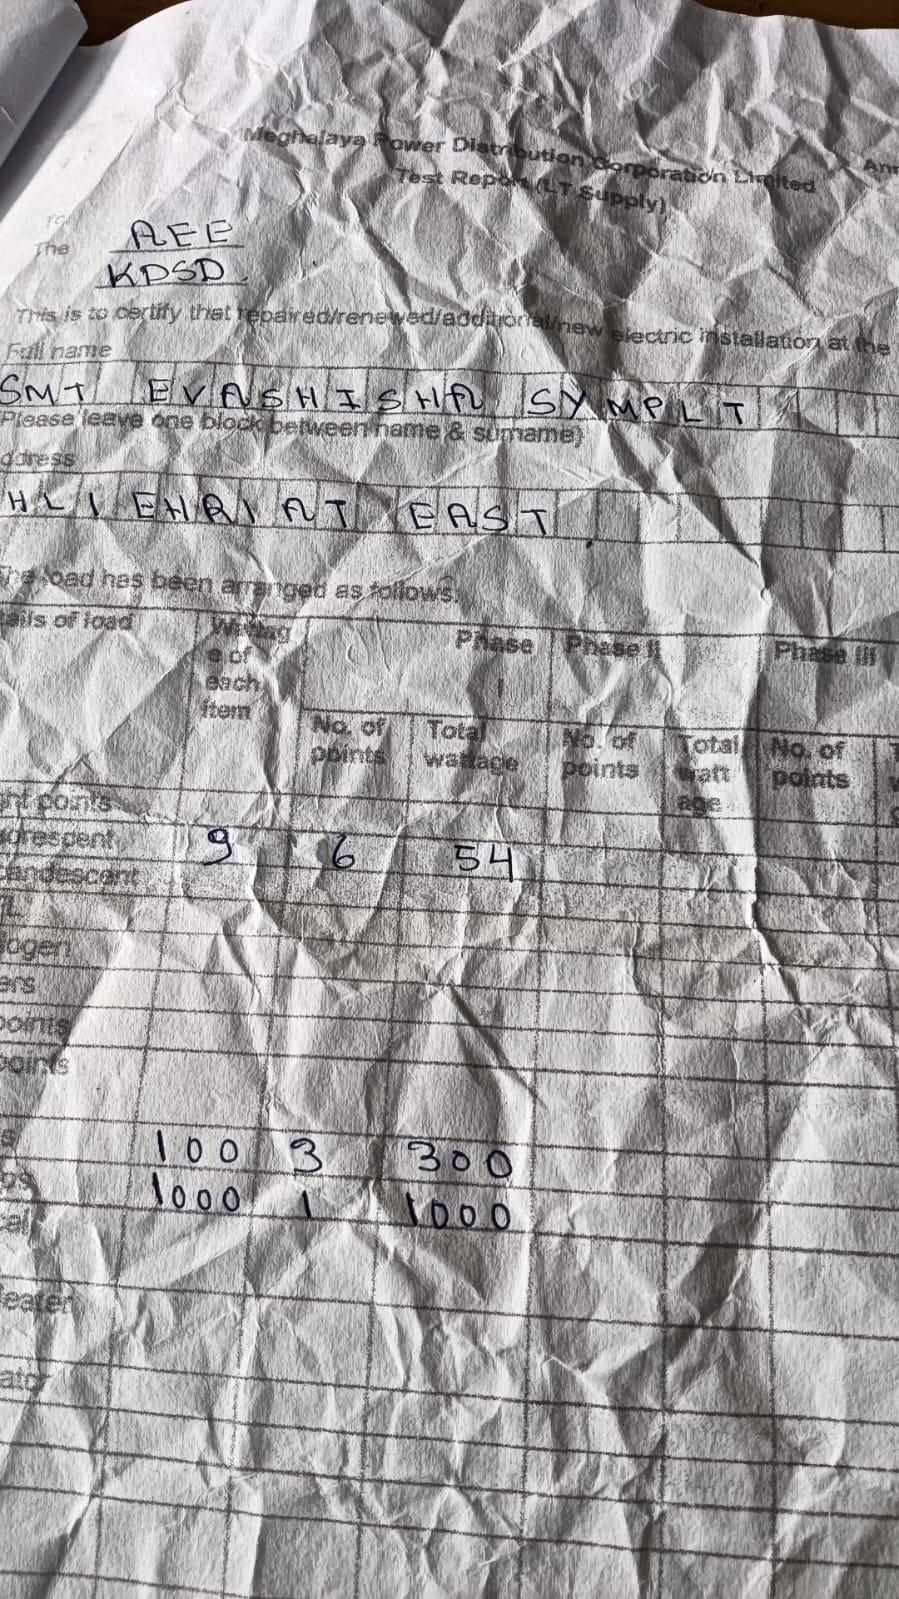 Meghalaya Power Distribution Corporation Limited
Test Report (LT Supply)
The AEE
KDSD
This is to certify that repaired/renewed/additional/new electric installation at the
Full name
SMT EVASHISHA SYMPLT
Please leave one block between name & surname)
ddress
HLIEHRIAT EAST
The load has been arranged as follows.
ails of load
e of each item
Phase I
Phase II
Phase III
No. of points
Total wattage
No. of points
Total watt age
No. of points
ht points
orescent 9 6 54
candescent
logen
ers
points
points
100 3 300
1000 1 1000
eater